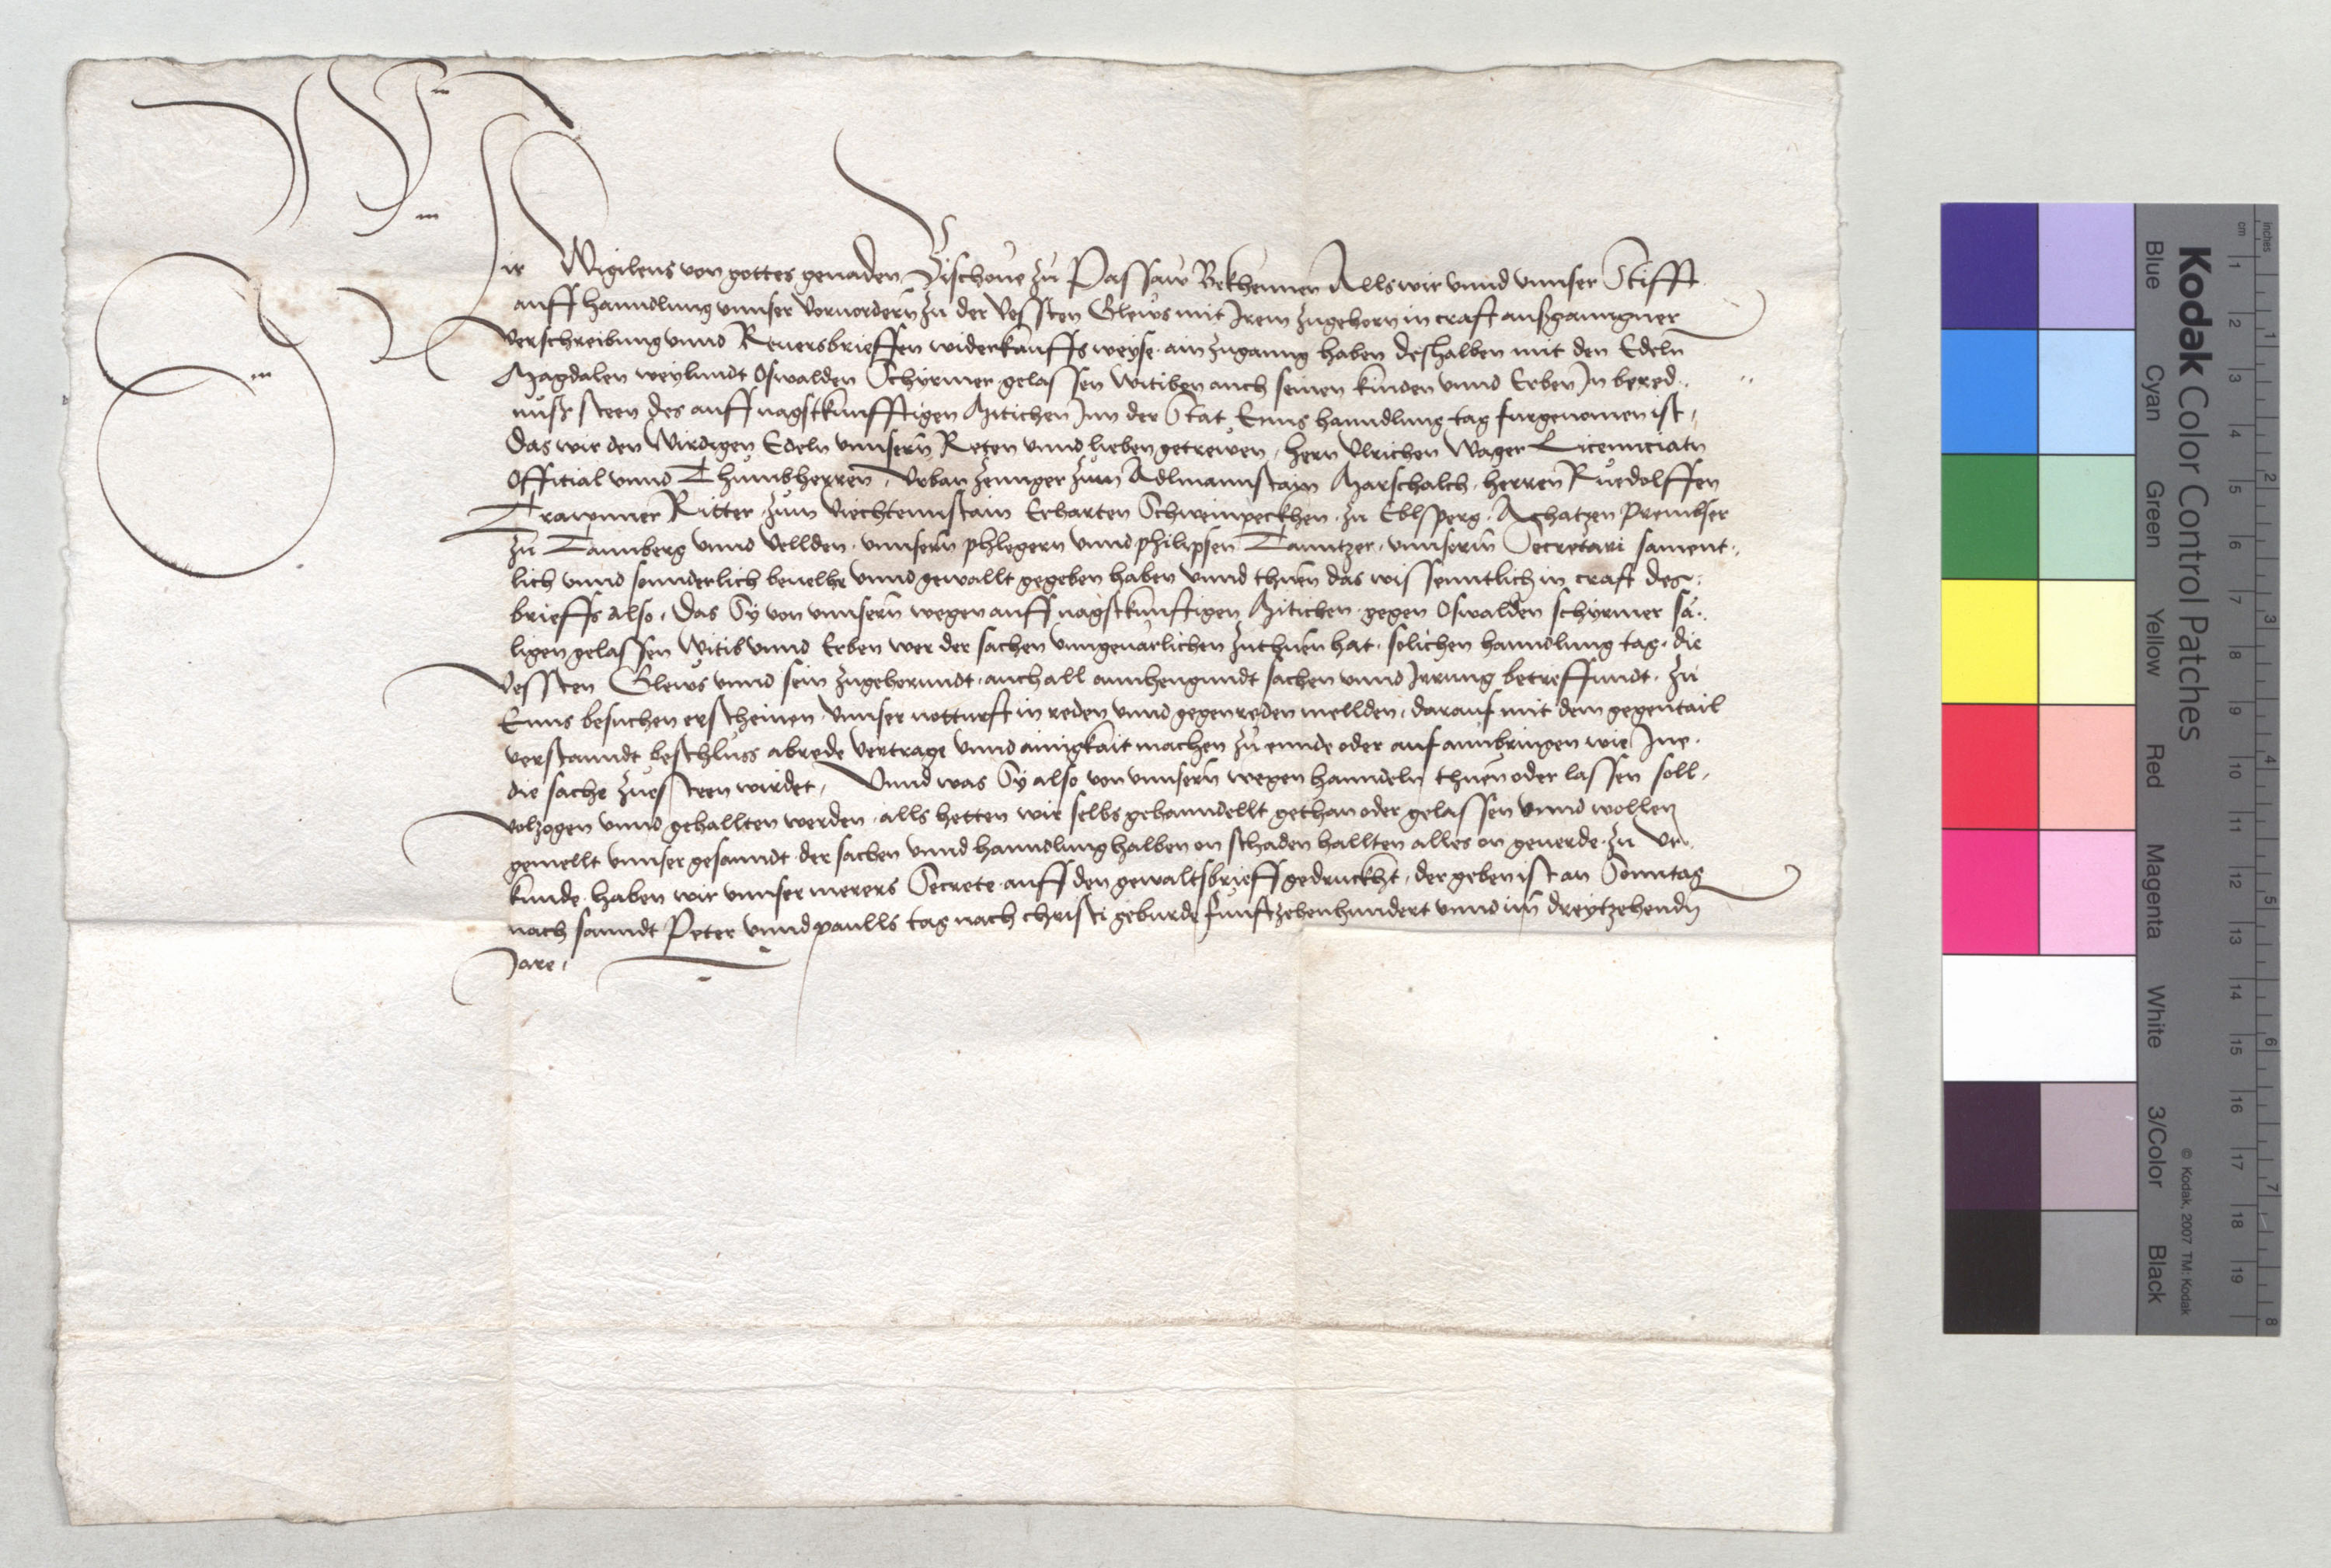 Wir Wigileus von gottes genaden Bischoue zů Passaw Bekhennen Alls wir vnnd vnnser Stifft
auff hanndlung vnnser voruordern zů der Vessten Gleẃs mit Irem zugehorn in craft außganngner
verschreibung vnnd Reuersbrieffen widerkauffs weyse ain zuganng haben deshalben mit den Edeln
Magdalen weylundt Oswalden Schyrmer gelassen Witiben auch seinen kinden vnnd Erben In bered..
nůß steen des auff nagstkunfftigen Mitichen Inn der Stat Enns hanndlung tag furgenomen ist,
Das wir den Wirdigen Edeln vnnsern Reten vnnd lieben getrewen, hern Vlrichen Wager Licennciatn
Official vnnd Thůmbherren, Vrban Zennger zům Adlmannstain Marschalch, herren Růedolffen
Trawnner Ritter zům Viechtennstain Erharten Schweinpeckhen zů Eblsperg, Achatzen Prembser
zů Tannberg vnnd Vellden, vnnsern phlegern vnnd philipsen Tanntzer, vnnserm Secretari sament,,
lich vnnd sonnderlich beuelhe vnnd gewallt gegeben haben vnnd thuen das wissenntlich in craft des
brieffs also, Das Sy von vnnsern wegen auff nagstkunftigen Mitichen gegen Oswalden schyrmer sä..
ligen gelassen Witib vnnd Erben wer der sachen vnngeuarlichen zuthuen hat, solichen hanndlung tag, die
Vessten Gleẃs vnnd sein zůgehorundt, auch all annhengundt sachen vnnd Irrung betreffundt, zů
Enns besuchen erscheinen, Vnnser notturft in reden vnnd gegenreden mellden, darauf mit dem gegentail
verstanndt beschlůss abrede vertrage vnnd ainigkait machen zů ennde oder auf annbringen wie Ine
die sache zuesteen wirdet, Vnnd was Sy also von vnnsern wegen hanndeln thuen oder lassen soll,
volzogen vnnd gehallten werden, alls hetten wir selbs gehanndellt gethan oder gelassen vnnd wollen
gemellt vnnser gesanndt der sachen vnnd hanndlung halben on schaden hallten alles on geuerde zů Vr..
kunde haben wir vnnser merers Secrete auff den gewaltsbrieff gedruckht, der geben ist an Sonntag
nach sanndt Peter vnnd paulls tag nach christi geburde funftzehenhundert vnnd im dreytzehendn
Jare,
Kodak Color Control Patches
Blue Cyan Green Yellow Red Magenta White 3/Color Black
© Kodak, 2007 TM: Kodak
cm 1 2 3 4 5 6 7 8 9 10 11 12 13 14 15 16 17 18 19
inches 1 2 3 4 5 6 7 8